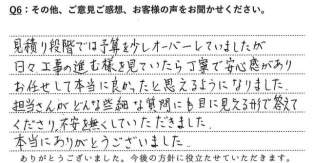 Q6：その他、ご意見ご感想、お客様の声をお聞かせください。
見積り段階では予算を少しオーバーしていましたが
日々工事の進む様を見ていたら丁寧で安心感があり
お任せして本当に良かったと思えるようになりました。
担当さんがどんな些細な質問にも目に見える形で答えて
くださり、不安を無くしていただきました。
本当にありがとうございました。
ありがとうございました。今後の方針に役立たせていただきます。